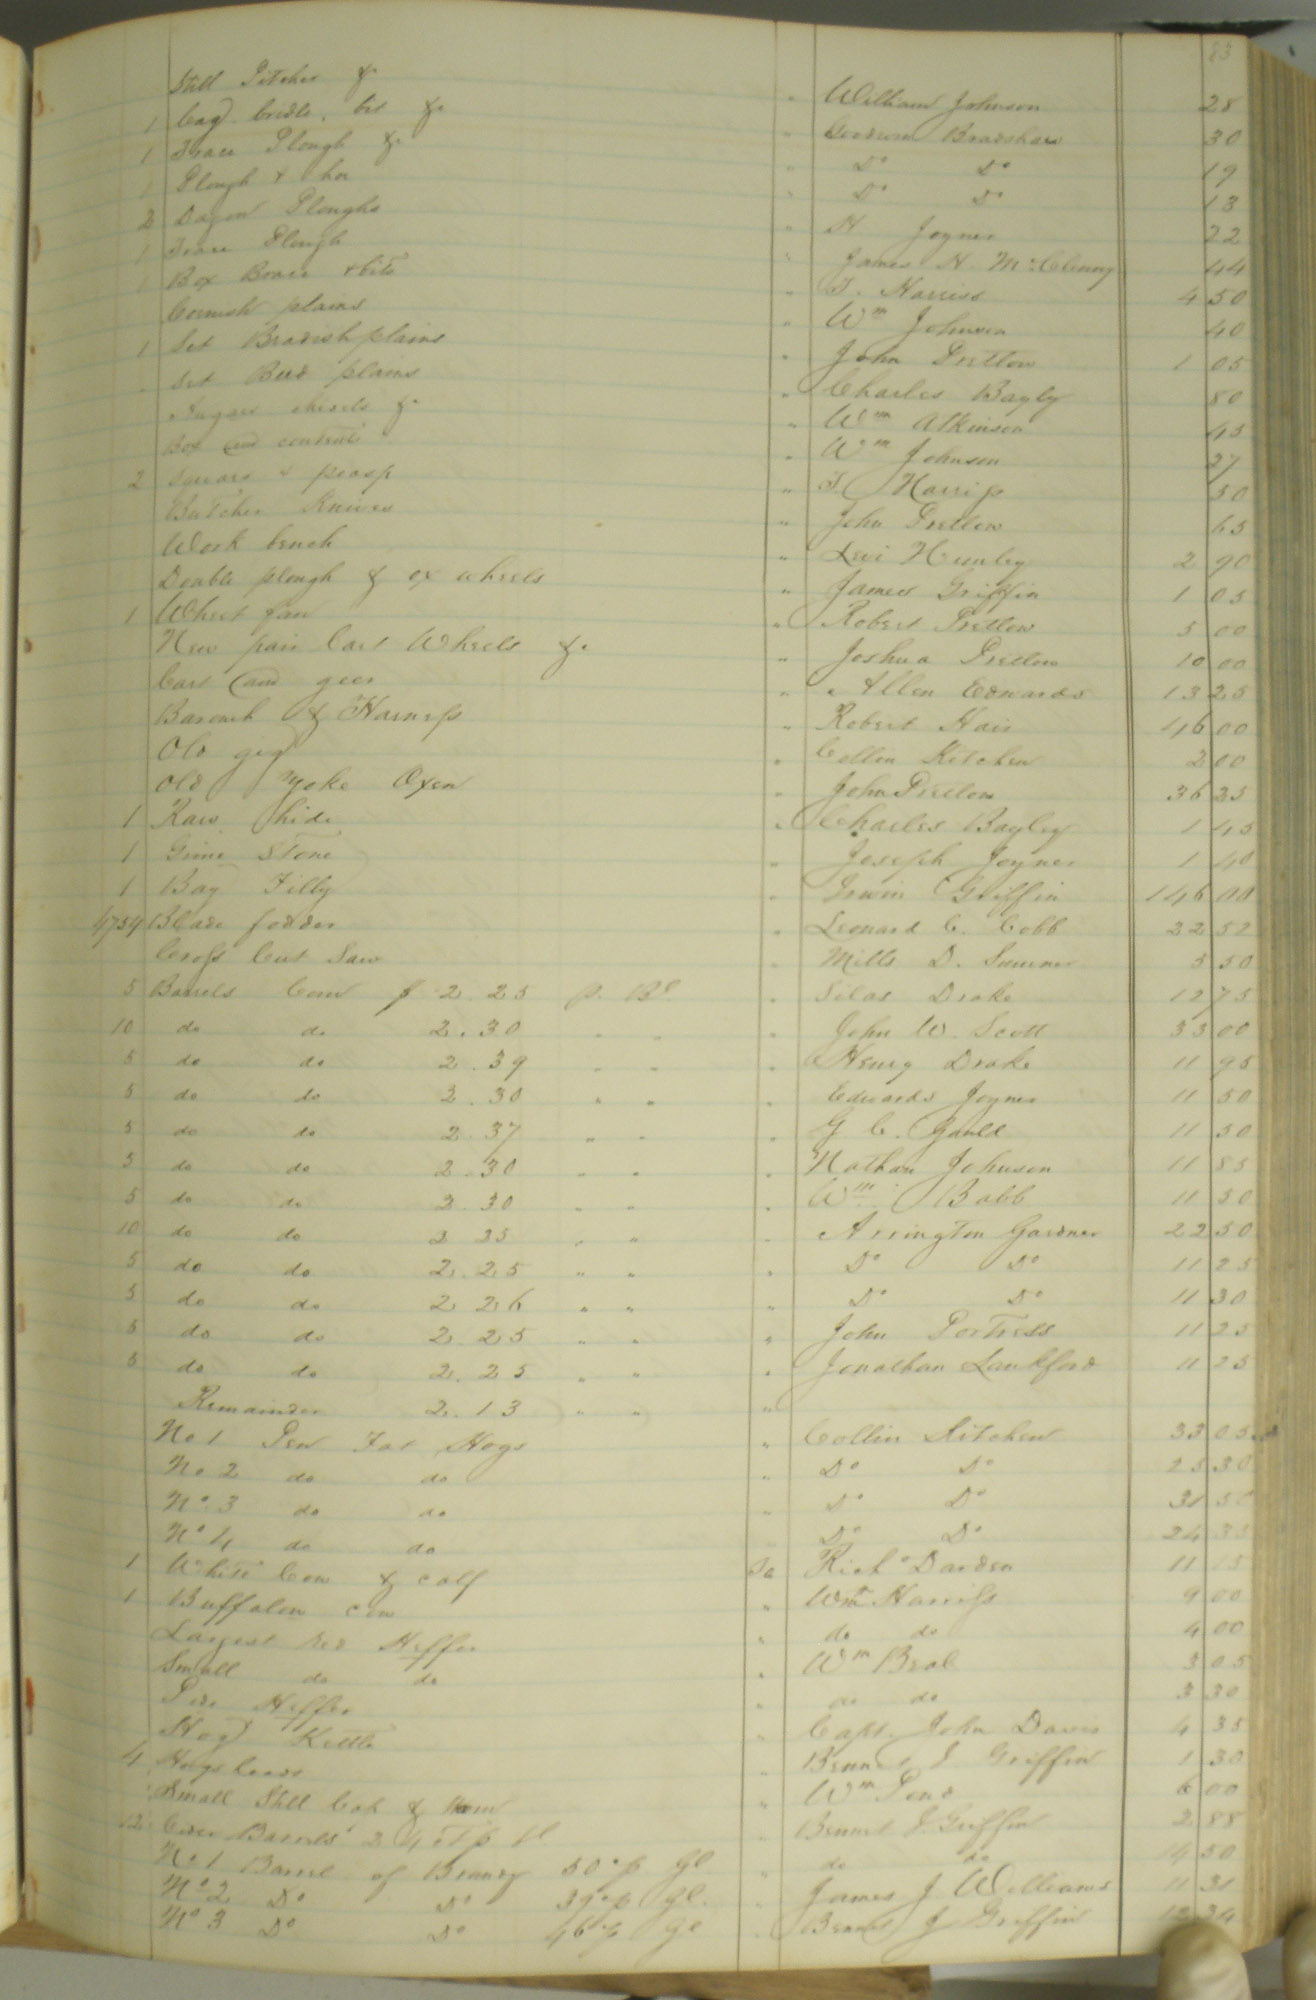 83
Still Pitcher &c " William Johnson 28
1 Cag. bridle, bit &c " Goodwin Bradshaw 30
1 Trace Plough &c " Do Do 19
1 Plough & hoe " Do Do 13
2 Dagon Ploughs " H Joyner 22
1 Trace Plough " James H. McClenny 44
1 Box Brace & bits " T. Harriss 4 50
Cornish plains " Wm Johnson 40
1 Set Bradish plains " John Pretlow 1 05
" Set Bead plains " Charles Bayly 80
Augars chisels &c " Wm Atkinson 45
Box and contents " Wm Johnson 27
2 Squars & " T. Harriss 50
Butcher Knives " John Pretlow 65
Work bench " Levi Humley 2 90
Double plough & ox wheels " James Griffin 1 05
1 Wheet fan " Robert Pretlow 5 00
New pair Cart Wheels &c " Joshua Pretlow 10 00
Cart and geer " Allen Edwards 13 25
Barouch & Harness " Robert Hair 46 00
Old gig " Collin Kitchen 2 00
Old Yoke Oxen " John Pretlow 36 25
1 Raw hide " Charles Bayley 1 45
1 Grine Stone " Joseph Joyner 1 40
1 Bay Filly " Irwin Griffin 146 00
4754 Blade fodder " Leonard C. Cobb 22 52
Cross Cut Saw " Mills D. Sumner 5 50
5 Barrels Corn f 2.25 p. Bl " Silas Drake 12 75
10 do do 2.30 " " " John W. Scott 33 00
5 do do 2.39 " " " Henry Drake 11 95
5 do do 2.30 " " " Edwards Joyner 11 50
5 do do 2.37 " " " G. C. Gauld 11 50
5 do do 2.30 " " " Nathan Johnson 11 85
5 do do 2.30 " " " Wm. Babb 11 50
10 do do 2 25 " " " Arrington Gardner 22 50
5 do do 2.25 " " " Do Do 11 25
5 do do 2 26 " " " Do Do 11 30
5 do do 2.25 " " " John Portress 11 25
5 do do 2.25 " " " Jonathan Lankford 11 25
Remainder 2.13 " " "
No 1 Pen Fat Hogs " Collin Kitchen 33 05
No 2 do do " Do Do 25 30
No. 3 do do " Do Do 31 50
No 4 do do " Do Do 24 35
1 White Cow & calf To Richd Darden 11 15
1 Buffalou cow " Wm Harriss 9 00
Largest red Heffer " do do 4 00
Small do do " Wm Beal 3 05
Pide Heffer " do do 3 30
Hog Kettle " Capt. John Davis 4 35
4 Hogsheads " Bennet J Griffin 1 30
Small Still Cap & Worm " Wm Pond 6 00
12 Cider Barrels 24 cts p bl " Bennet J. Griffin 2 88
No. 1 Barrel of Brandy 50c p Gl " do do 14 50
No 2 Do Do 39c p Gl. " James J Williams 11 31
No 3 Do Do 46c p Gl " Bennet J Griffin 12 34